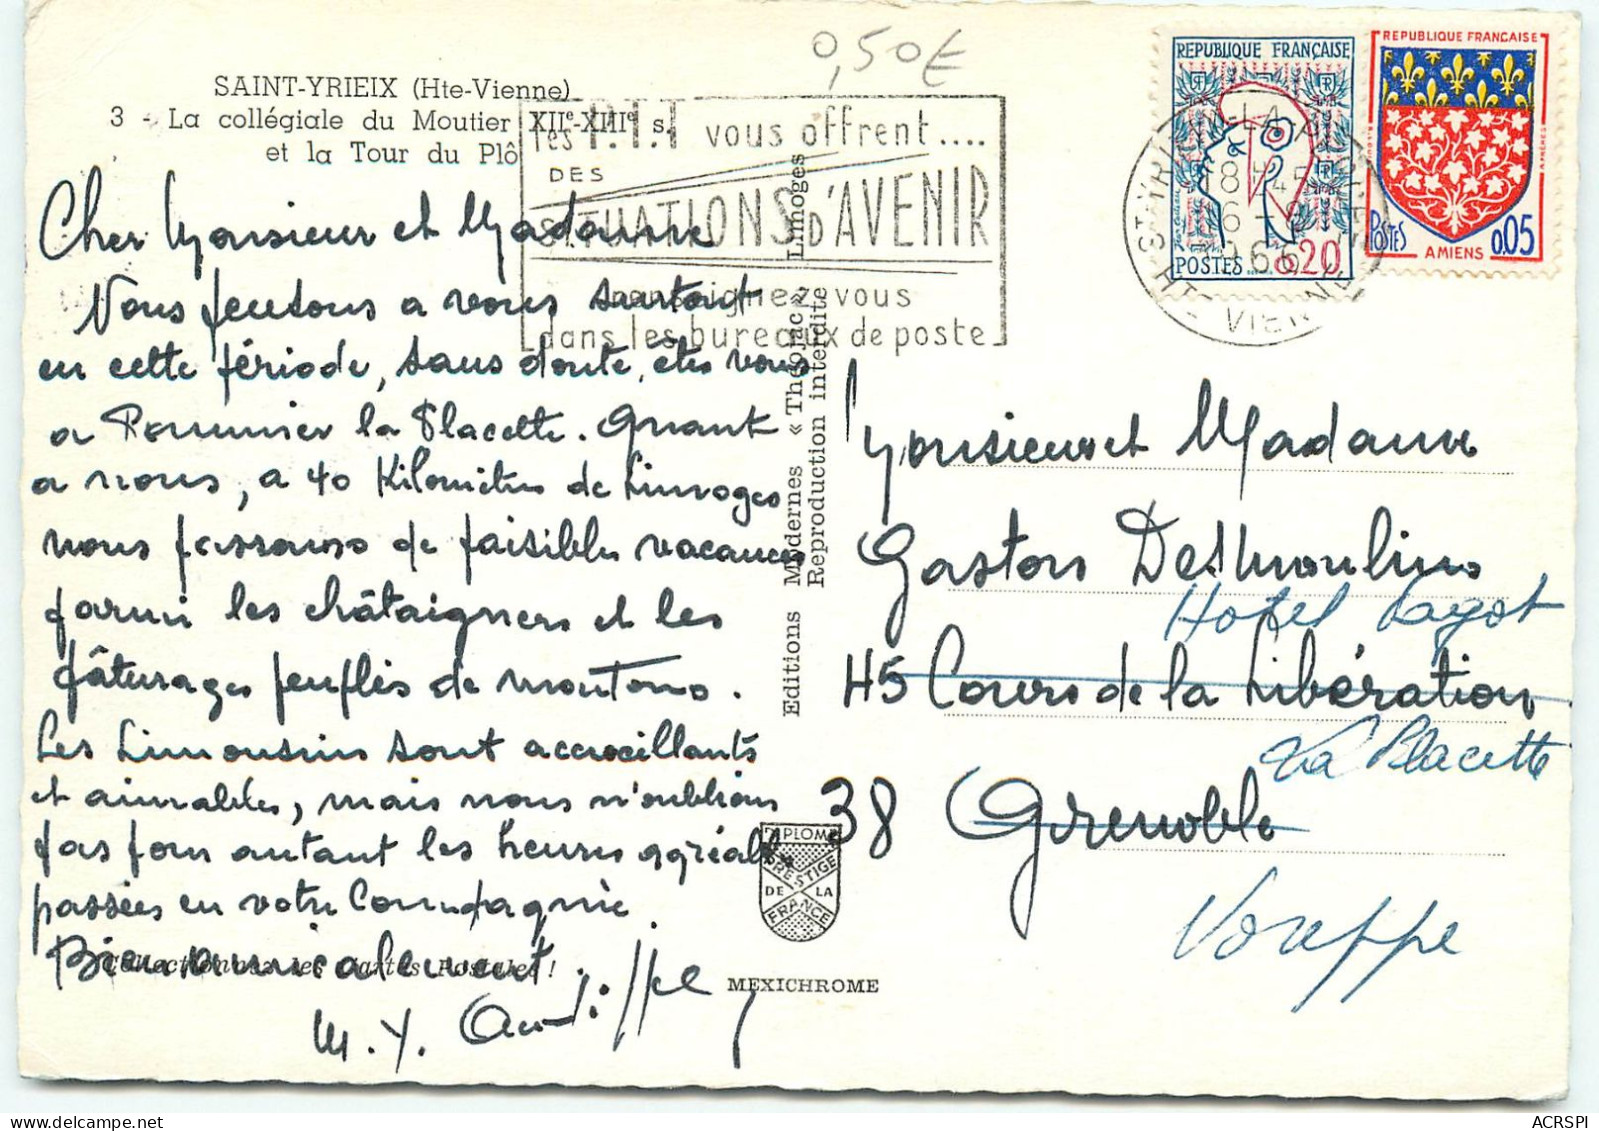 0,50€
SAINT-YRIEIX (Hte-Vienne)
3 - La collégiale du Moutier XIIe-XIIIe s.
et la Tour du Plô
les P.T.T vous offrent....
DES
SITUATIONS D'AVENIR
renseignez-vous
dans les bureaux de poste
REPUBLIQUE FRANÇAISE
POSTES 0.20
REPUBLIQUE FRANÇAISE
POSTES 0.05
AMIENS
ST YRIEIX-LA-PERCHE
18 H45
16 -8
1963
HTE VIENNE
Cher Monsieur et Madame
Nous pensons a vous surtout
en cette période, sans doute, êtes vous
a Pommier la Placette. Quant
a nous, a 40 Kilomètres de Limoges
nous passons de paisibles vacances
parmi les châtaigners et les
pâturages peuplés de moutons.
Les Limousins sont accroeillants
et aimables, mais nous n'oublions
pas pour autant les heures agréables
passées en votre Compagnie.
Bien amicalement
M. Y.
Collectionnez les Cartes Postales !
Editions Modernes « Théojac » Limoges
Reproduction interdite
DIPLOME
PRESTIGE
DE LA
FRANCE
MEXICHROME
Monsieur et Madame
Gaston Desmoulins
Hotel Pagot
45 Cours de la Libération
La Placette
38 Grenoble
Voreppe
ACRSPI
delcampe.net